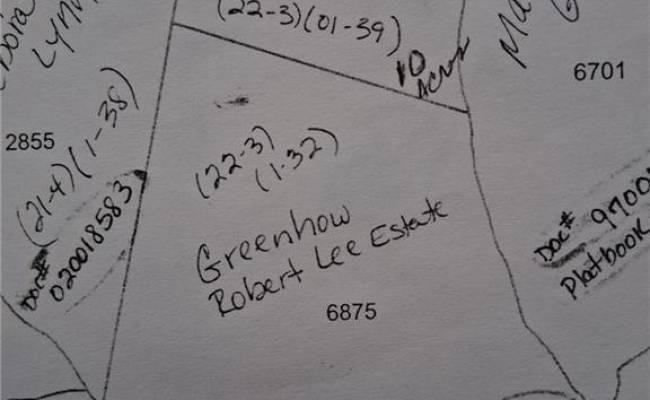 Dora
Lynn
(22-3)(01-39)
10
Acres
Ma
6701
2855
(21-4)(1-38)
Doc#
020018583
(22-3)
(1-32)
Greenhow
Robert Lee Estate
6875
Doc# 9700
Platbook